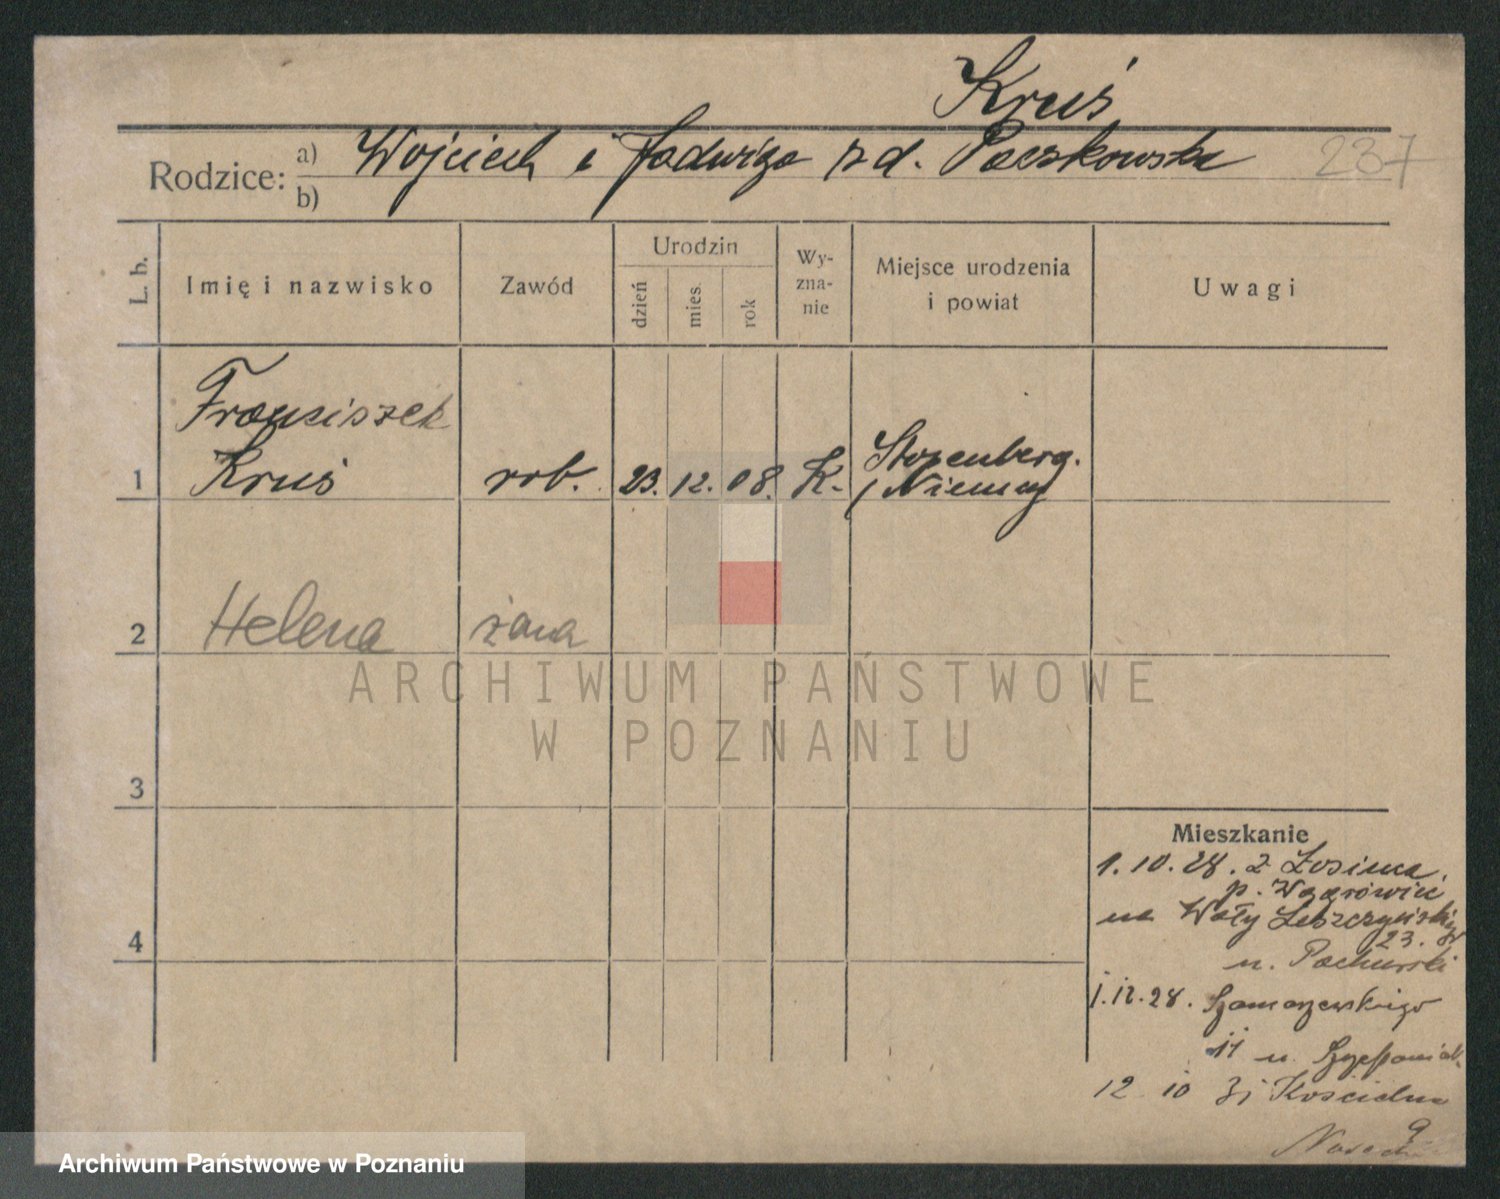 Kruś
Rodzice: a) Wojciech i Jadwiga z d. Paczkowska 237
b)
L. b. Imię i nazwisko Zawód Urodzin dzień mies. rok Wy-zna-nie Miejsce urodzenia i powiat Uwagi
Franciszek
1 Kruś rob. 23. 12. 08. K. Stopenberg.
/Niemcy
2 Helena żona
ARCHIWUM PAŃSTWOWE
W POZNANIU
3
Mieszkanie
1.10.28. z Łosina
p. Wągrowiec
na Wały Leszczyńskiego
23.
4
u.
1.12.28. Szamarzewskiego
11 u. Szczepaniak
12 10 31 Kościelna
9
Archiwum Państwowe w Poznaniu